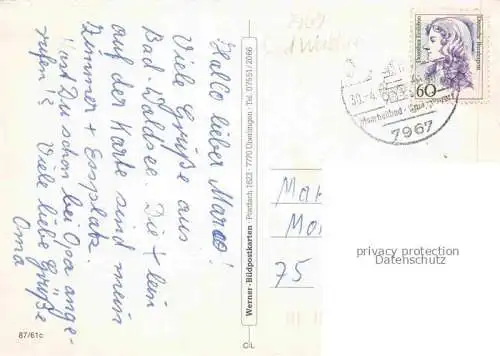 Hallo lieber Marco!
Viele Grüße aus
Bad-Waldsee. Die + lein
auf der Karte sind mein
Zimmer + Essplatz.
Hast Du schon bei Opa ange-
rufen!?
Viele liebe Grüße
Oma
87/61c
Werner-Bildpostkarten · Postfach 1622 · 7770 Überlingen · Tel. 07551/2066
C/L
7967
Deutsche Bundespost
60
30.-4.
7967
Mar
Mo
75
privacy protection
Datenschutz